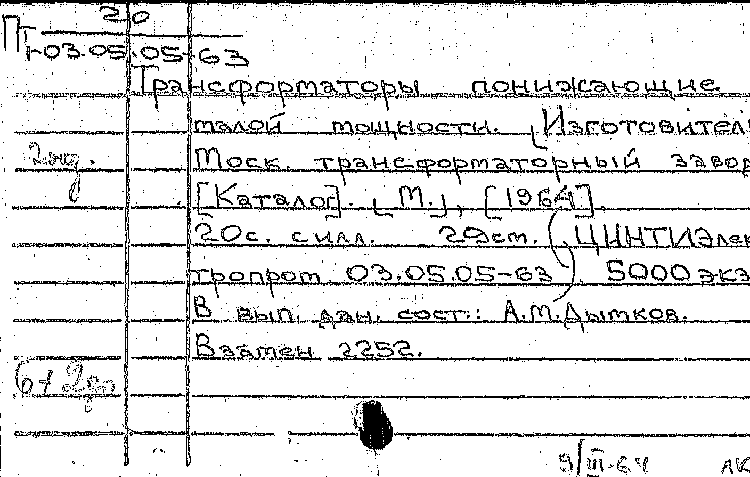 20
ПТ-03.05.05-63
Трансформаторы понижающие
малой мощности. Изготовитель
Моск. трансформаторный завод
[Каталог]. [М.], [1964].
20с. с илл. 29см. (ЦИНТИЭлек
тропром 03.05.05-63). 5000 экз
В вып. дан. сост.: А.М.Дытков.
Взамен 2252.
9/III-64 АК